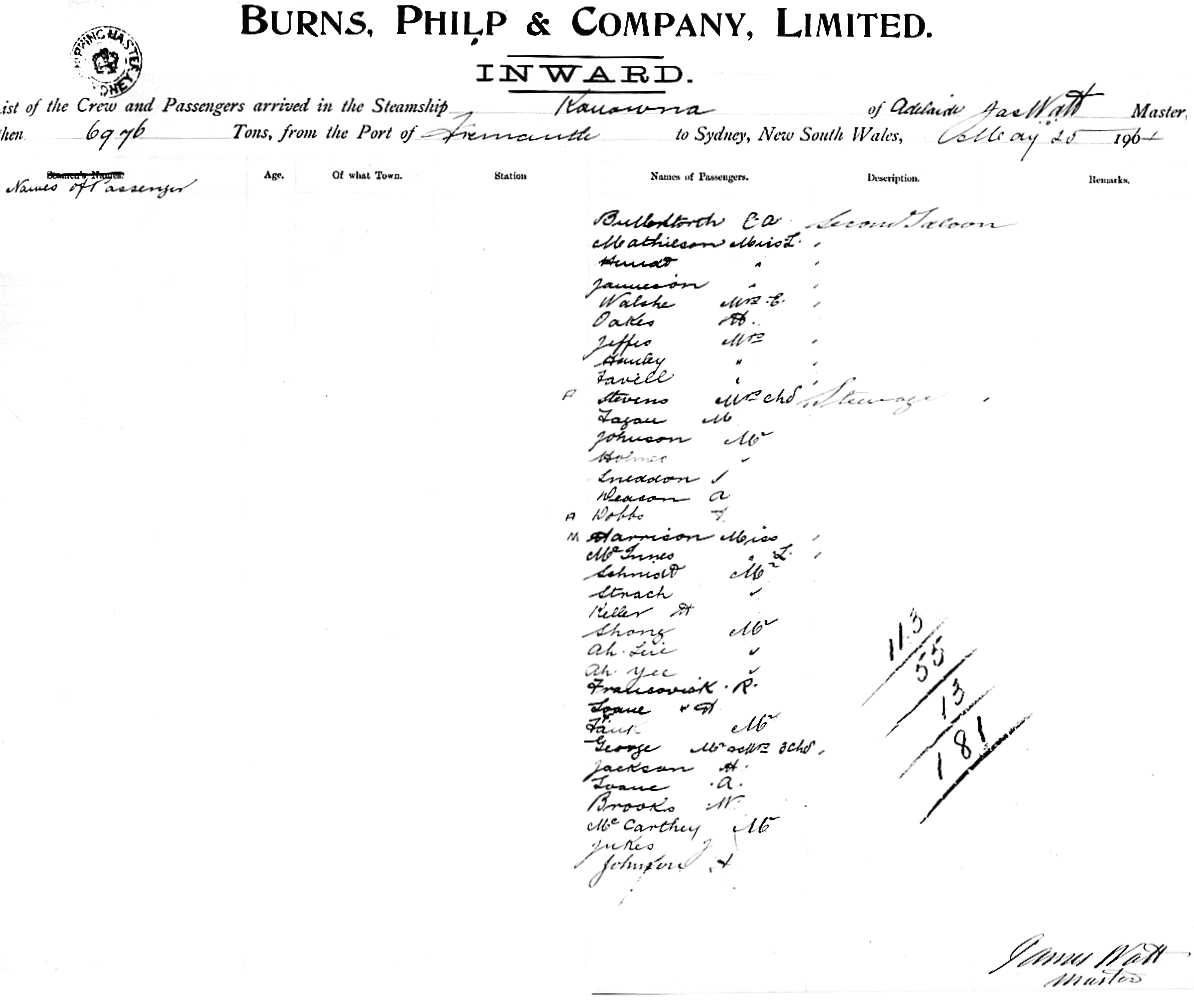 BURNS, PHILP & COMPANY, LIMITED.
INWARD.
ist of the Crew and Passengers arrived in the Steamship Kanowna of Adelaide Jas Watt Master,
hen 6976 Tons, from the Port of Fremantle to Sydney, New South Wales, May 25 190
Seamen's Names. Age. Of what Town. Station Names of Passengers. Description. Remarks.
Names of Passenger
C A Second Saloon
Mathieson Miss L. "
"
Jamieson " "
Walshe Mrs E. "
Oakes H.
Jeffes Mrs "
" "
Favell " "
A Stevens Mrs chd Steerage "
Fagan M
Johnson Mr
Holmes "
Sneddon J
Deason A
A Dobbs F.
M Harrison Miss "
McInnes " L. "
Schmidt Mr
Strach "
Keller H
Shong Mr
Ah Lee "
Ah Yee "
Francovick R.
H
Mr
George Mr & Mrs 3 Chd "
Jackson H.
A.
Brooks W.
McCarthey Mr
Jukes J
Johnson A
113
55
13
181
James Watt
Master